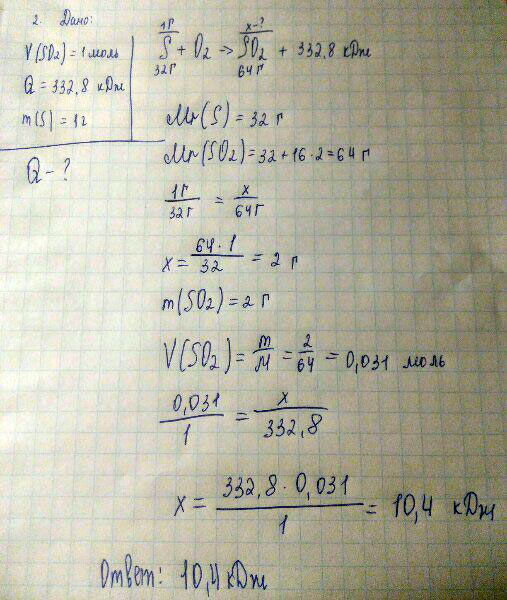 2. Дано:
V(SO2) = 1 моль
Q = 332,8 кДж
m(S) = 1г
Q - ?
1г x-?
S + O2 → SO2 + 332,8 кДж
32г 64г
Mr(S) = 32 г
Mr(SO2) = 32 + 16 · 2 = 64 г
1г/32г = x/64г
x = 64 · 1/32 = 2 г
m(SO2) = 2 г
V(SO2) = m/M = 2/64 = 0,031 моль
0,031/1 = x/332,8
x = 332,8 · 0,031/1 = 10,4 кДж
Ответ: 10,4 кДж